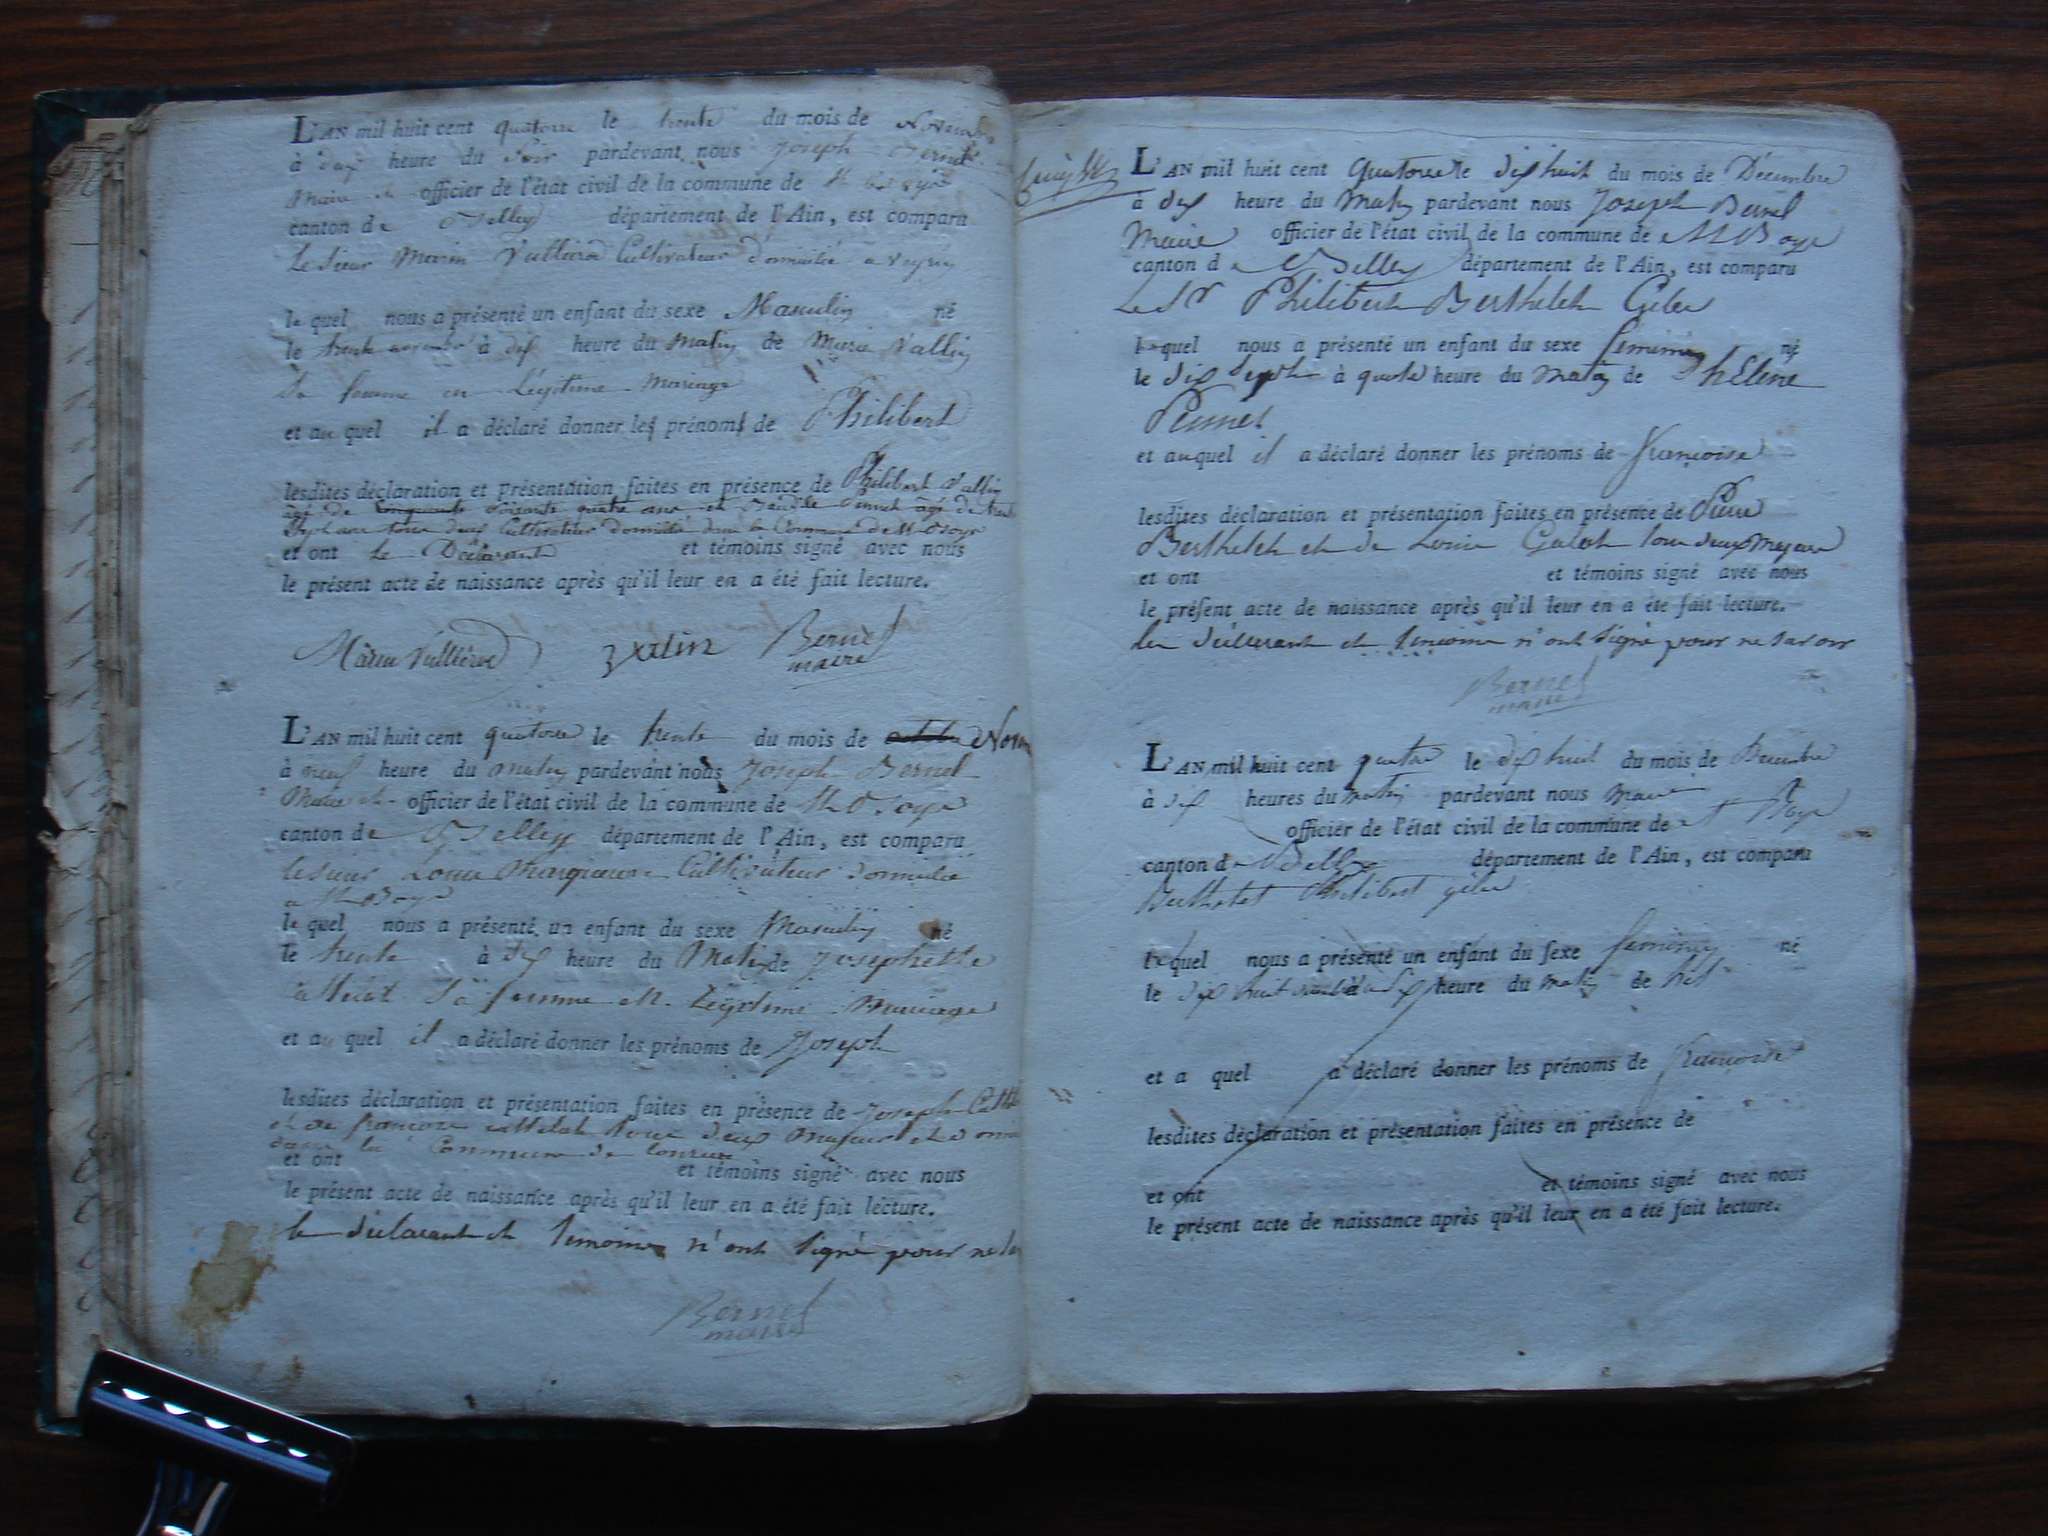 L'AN mil huit cent quatorze le trente du mois de Novembre
à dix heure du soir pardevant nous Joseph Bernel
Maire officier de l'état civil de la commune de St Boys
canton de Belley département de l'Ain, est comparu
Le Sieur Marin Cultivateur domicilié a
le quel nous a présenté un enfant du sexe Masculin né
le trente novembre à dix heure du Matin de Marie Vallin
sa femme en Légitime Mariage
et au quel il a déclaré donner les prénoms de Philibert
lesdites déclaration et présentation faites en présence de Philibert Vallin
âgé de soixante quatre ans et âgé de trente
sept ans tous deux Cultivateur domicilié dans la Commune de St Boys
et ont Le Déclarant et témoins signé avec nous
le présent acte de naissance après qu'il leur en a été fait lecture.
Bernel
maire
L'AN mil huit cent quatorze le trente du mois de Novem
à neuf heure du matin pardevant nous Joseph Bernel
Maire officier de l'état civil de la commune de St Boys
canton de Belley département de l'Ain, est comparu
le sieur Louis Cultivateur domicilié
a St Boys
le quel nous a présenté un enfant du sexe Masculin né
le trente à dix heure du Matin de Josephette
sa femme et Légitime Mariage
et au quel il a déclaré donner les prénoms de Joseph
lesdites déclaration et présentation faites en présence de Joseph
et de françois tous deux majeurs et
dans la Commune de
et ont et témoins signé avec nous
le présent acte de naissance après qu'il leur en a été fait lecture.
le déclarant et temoins n'ont signé pour ne
Bernel
maire
L'AN mil huit cent quatorze le dix huit du mois de Décembre
à dix heure du Matin pardevant nous Joseph Bernel
Maire officier de l'état civil de la commune de St Boys
canton de Belley département de l'Ain, est comparu
Le Sr Philibert Berthelet
lequel nous a présenté un enfant du sexe feminin né
le dix sept à quatre heure du Matin de hélène
Pernet
et auquel il a déclaré donner les prénoms de françoise
lesdites déclaration et présentation faites en présence de Pierre
Berthelet et de Louis tous deux Majeurs
et ont et témoins signé avec nous
le présent acte de naissance après qu'il leur en a été fait lecture.
les déclarant et temoins n'ont signé pour ne savoir
Bernel
maire
L'AN mil huit cent quator le dix huit du mois de Décembre
à dix heures du matin pardevant nous Maire
officier de l'état civil de la commune de St Boys
canton de Belley département de l'Ain, est comparu
Berthelet Philibert
lequel nous a présenté un enfant du sexe feminin né
le dix huit à dix heure du matin de
et a quel a déclaré donner les prénoms de francoise
lesdites déclaration et présentation faites en présence de
et ont et témoins signé avec nous
le présent acte de naissance après qu'il leur en a été fait lecture.